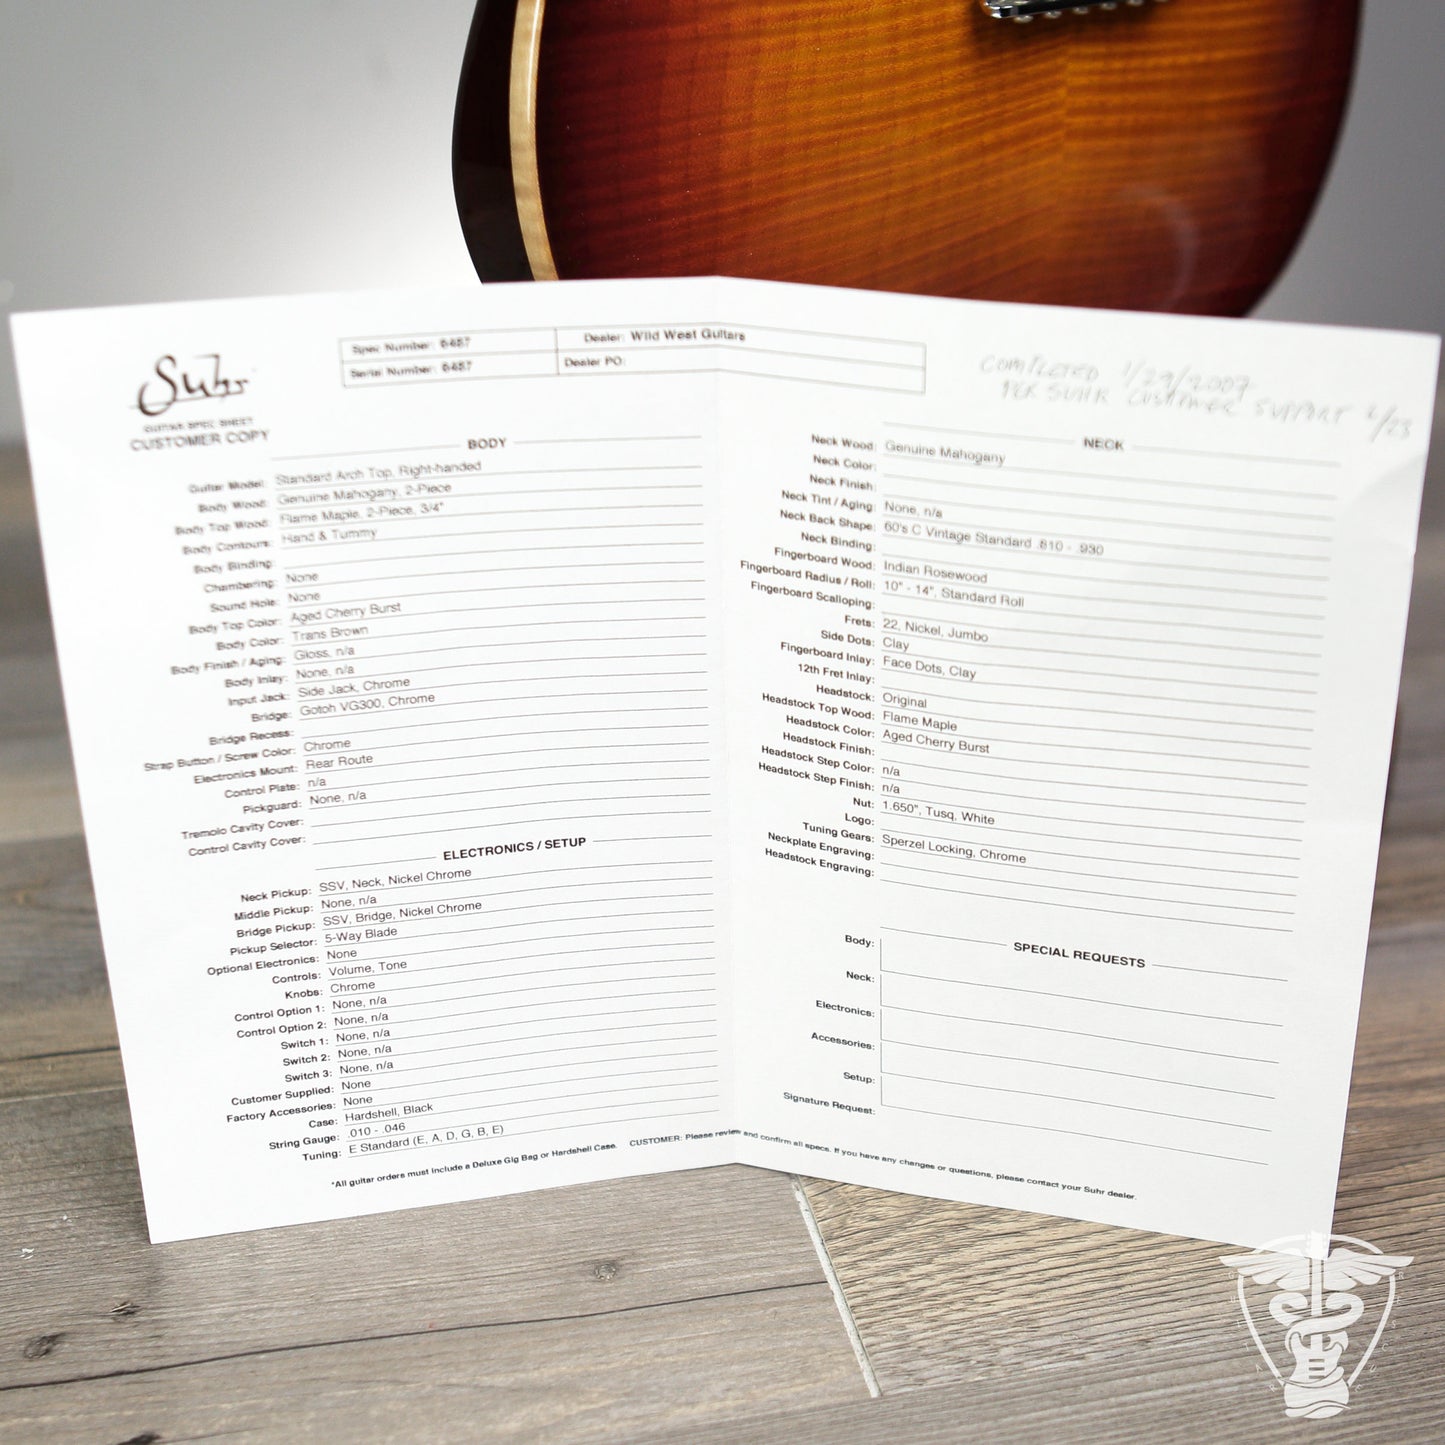 Suhr
GUITAR SPEC SHEET
CUSTOMER COPY
Spec Number: 6487
Serial Number: 6487
Dealer: Wild West Guitars
Dealer PO:
COMPLETED 1/29/2007
PER SUHR CUSTOMER SUPPORT 2/23
BODY
Guitar Model: Standard Arch Top, Right-handed
Body Wood: Genuine Mahogany, 2-Piece
Body Top Wood: Flame Maple, 2-Piece, 3/4"
Body Contours: Hand & Tummy
Body Binding:
Chambering: None
Sound Hole: None
Body Top Color: Aged Cherry Burst
Body Color: Trans Brown
Body Finish / Aging: Gloss, n/a
Body Inlay: None, n/a
Input Jack: Side Jack, Chrome
Bridge: Gotoh VG300, Chrome
Bridge Recess:
Strap Button / Screw Color: Chrome
Electronics Mount: Rear Route
Control Plate: n/a
Pickguard: None, n/a
Tremolo Cavity Cover:
Control Cavity Cover:
ELECTRONICS / SETUP
Neck Pickup: SSV, Neck, Nickel Chrome
Middle Pickup: None, n/a
Bridge Pickup: SSV, Bridge, Nickel Chrome
Pickup Selector: 5-Way Blade
Optional Electronics: None
Controls: Volume, Tone
Knobs: Chrome
Control Option 1: None, n/a
Control Option 2: None, n/a
Switch 1: None, n/a
Switch 2: None, n/a
Switch 3: None, n/a
Customer Supplied: None
Factory Accessories: None
Case: Hardshell, Black
String Gauge: .010 - .046
Tuning: E Standard (E, A, D, G, B, E)
NECK
Neck Wood: Genuine Mahogany
Neck Color:
Neck Finish:
Neck Tint / Aging: None, n/a
Neck Back Shape: 60's C Vintage Standard .810 - .930
Neck Binding:
Fingerboard Wood: Indian Rosewood
Fingerboard Radius / Roll: 10" - 14", Standard Roll
Fingerboard Scalloping:
Frets: 22, Nickel, Jumbo
Side Dots: Clay
Fingerboard Inlay: Face Dots, Clay
12th Fret Inlay:
Headstock: Original
Headstock Top Wood: Flame Maple
Headstock Color: Aged Cherry Burst
Headstock Finish:
Headstock Step Color: n/a
Headstock Step Finish: n/a
Nut: 1.650", Tusq, White
Logo:
Tuning Gears: Sperzel Locking, Chrome
Neckplate Engraving:
Headstock Engraving:
SPECIAL REQUESTS
Body:
Neck:
Electronics:
Accessories:
Setup:
Signature Request:
*All guitar orders must include a Deluxe Gig Bag or Hardshell Case. CUSTOMER: Please review and confirm all specs. If you have any changes or questions, please contact your Suhr dealer.